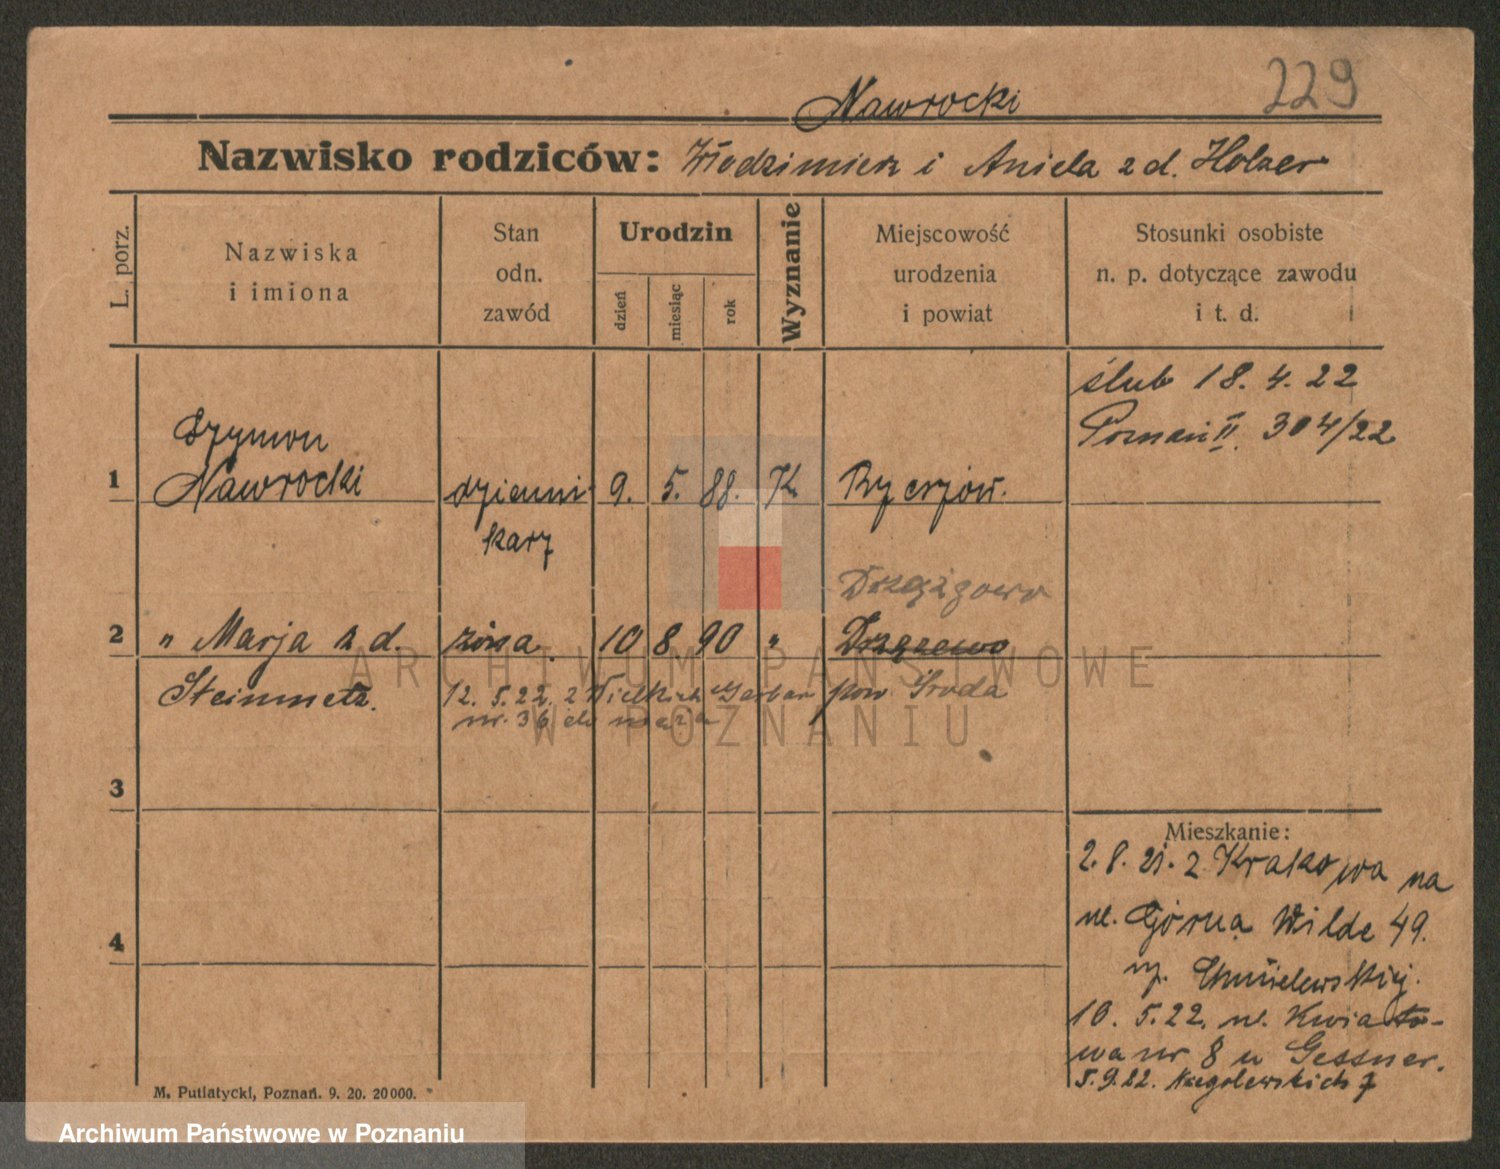 229
Nawrocki
Nazwisko rodziców: Włodzimierz i Aniela z d. Holzer
L. porz.
Nazwiska
i imiona
Stan
odn.
zawód
Urodzin
dzień
miesiąc
rok
Wyznanie
Miejscowość
urodzenia
i powiat
Stosunki osobiste
n. p. dotyczące zawodu
i t. d.
ślub 18. 4. 22
Poznań II. 304/22
Szymon
1 Nawrocki dzienni- 9. 5. 88. K. Ryczów.
karz
2 " Marja z d. żona. 10 8 90 "
Steinmetz. 12. 5. 22. z Wielkich Garbar pow Środa
nr. 36 do męża
3
4
Mieszkanie:
2. 8. 21. z Krakowa na
ul. Górna Wilde 49.
Chmielewskiej.
10. 5. 22. ul. Kwiato-
wa nr 8 u Gessner.
5. 9. 22. 7
M. Putiatycki, Poznań. 9. 20. 20000.
ARCHIWUM PAŃSTWOWE
W POZNANIU
Archiwum Państwowe w Poznaniu